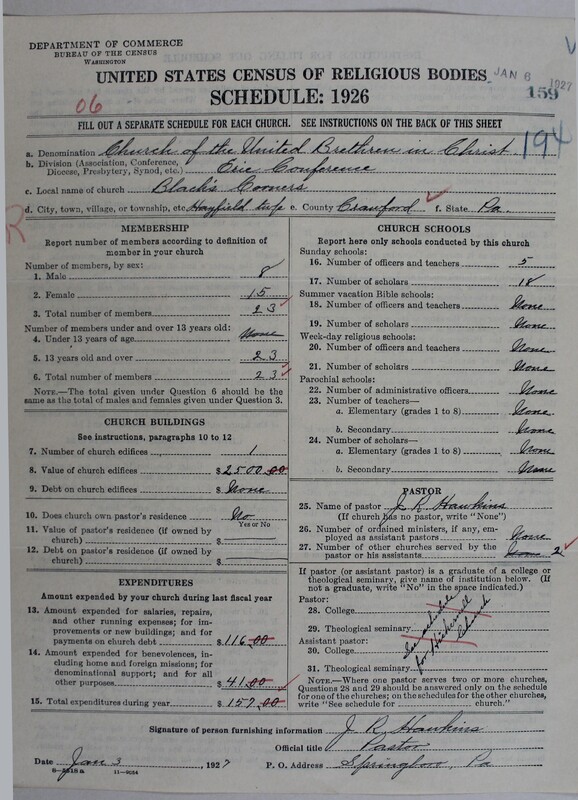 DEPARTMENT OF COMMERCE
BUREAU OF THE CENSUS
WASHINGTON
UNITED STATES CENSUS OF RELIGIOUS BODIES
JAN 6 1927
159
SCHEDULE: 1926
06
FILL OUT A SEPARATE SCHEDULE FOR EACH CHURCH. SEE INSTRUCTIONS ON THE BACK OF THIS SHEET
194
a. Denomination Church of the United Brethren in Christ
b. Division (Association, Conference, Diocese, Presbytery, Synod, etc.) Erie Conference
c. Local name of church Black's Corners
d. City, town, village, or township, etc. Hayfield twp e. County Crawford f. State Pa.
MEMBERSHIP
Report number of members according to definition of
member in your church
Number of members, by sex:
1. Male 8
2. Female 15
3. Total number of members 23
Number of members under and over 13 years old:
4. Under 13 years of age None
5. 13 years old and over 23
6. Total number of members 23
NOTE.—The total given under Question 6 should be the
same as the total of males and females given under Question 3.
CHURCH BUILDINGS
See instructions, paragraphs 10 to 12
7. Number of church edifices 1
8. Value of church edifices $2500.00
9. Debt on church edifices $None
10. Does church own pastor's residence? No
Yes or No
11. Value of pastor's residence (if owned by
church) $
12. Debt on pastor's residence (if owned by
church) $
EXPENDITURES
Amount expended by your church during last fiscal year
13. Amount expended for salaries, repairs,
and other running expenses; for im-
provements or new buildings; and for
payments on church debt $116.00
14. Amount expended for benevolences, in-
cluding home and foreign missions; for
denominational support; and for all
other purposes $41.00
15. Total expenditures during year $157.00
CHURCH SCHOOLS
Report here only schools conducted by this church
Sunday schools:
16. Number of officers and teachers 5
17. Number of scholars 18
Summer vacation Bible schools:
18. Number of officers and teachers None
19. Number of scholars None
Week-day religious schools:
20. Number of officers and teachers None
21. Number of scholars None
Parochial schools:
22. Number of administrative officers None
23. Number of teachers—
a. Elementary (grades 1 to 8) None
b. Secondary None
24. Number of scholars—
a. Elementary (grades 1 to 8) None
b. Secondary None
PASTOR
25. Name of pastor J. R. Hawkins
(If church has no pastor, write "None")
26. Number of ordained ministers, if any, em-
ployed as assistant pastors None
27. Number of other churches served by the
pastor or his assistants 2
If pastor (or assistant pastor) is a graduate of a college or
theological seminary, give name of institution below. (If
not a graduate, write "No" in the space indicated.)
Pastor:
28. College
29. Theological seminary
Assistant pastor:
30. College
31. Theological seminary
See schedule
for
Church
NOTE.—Where one pastor serves two or more churches,
Questions 28 and 29 should be answered only on the schedule
for one of the churches; on the schedules for the other churches,
write "See schedule for church."
Signature of person furnishing information J. R. Hawkins
Official title Pastor
Date Jan 3, 1927 P. O. Address Springboro, Pa
8-5518a 11-9034